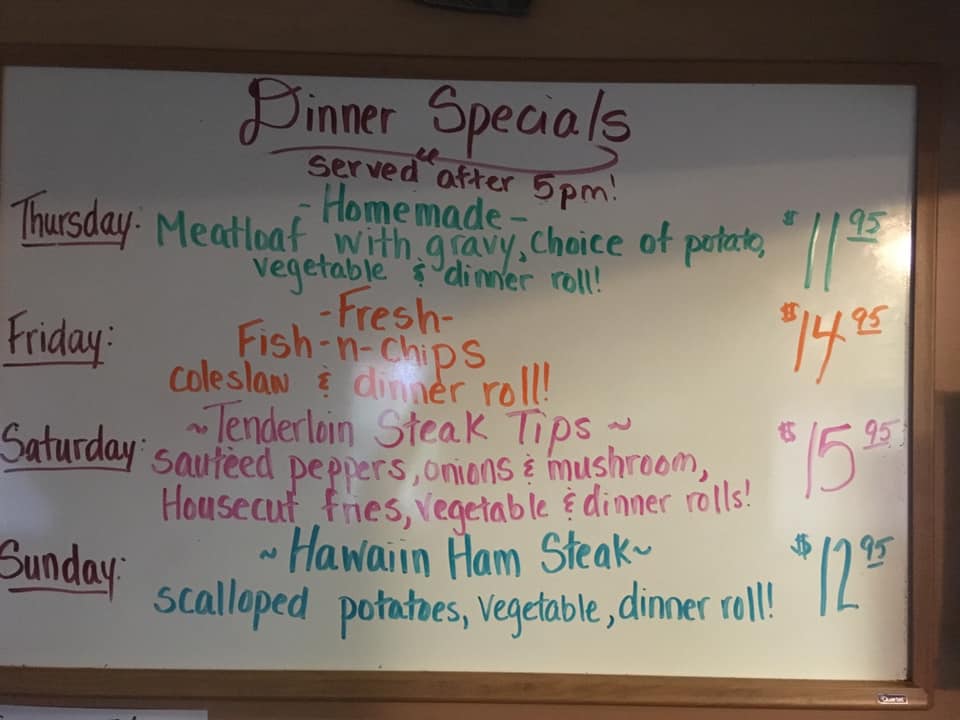 Dinner Specials
served "after 5pm!
Thursday: -Homemade-
Meatloaf with gravy, choice of potato, $11.95
vegetable & dinner roll!
Friday: -Fresh-
Fish-n-chips $14.95
coleslaw & dinner roll!
Saturday: ~Tenderloin Steak Tips~ $15.95
sauteed peppers, onions & mushroom,
Housecut fries, vegetable & dinner rolls!
Sunday: ~Hawaiin Ham Steak~ $12.95
scalloped potatoes, vegetable, dinner roll!
Quartet